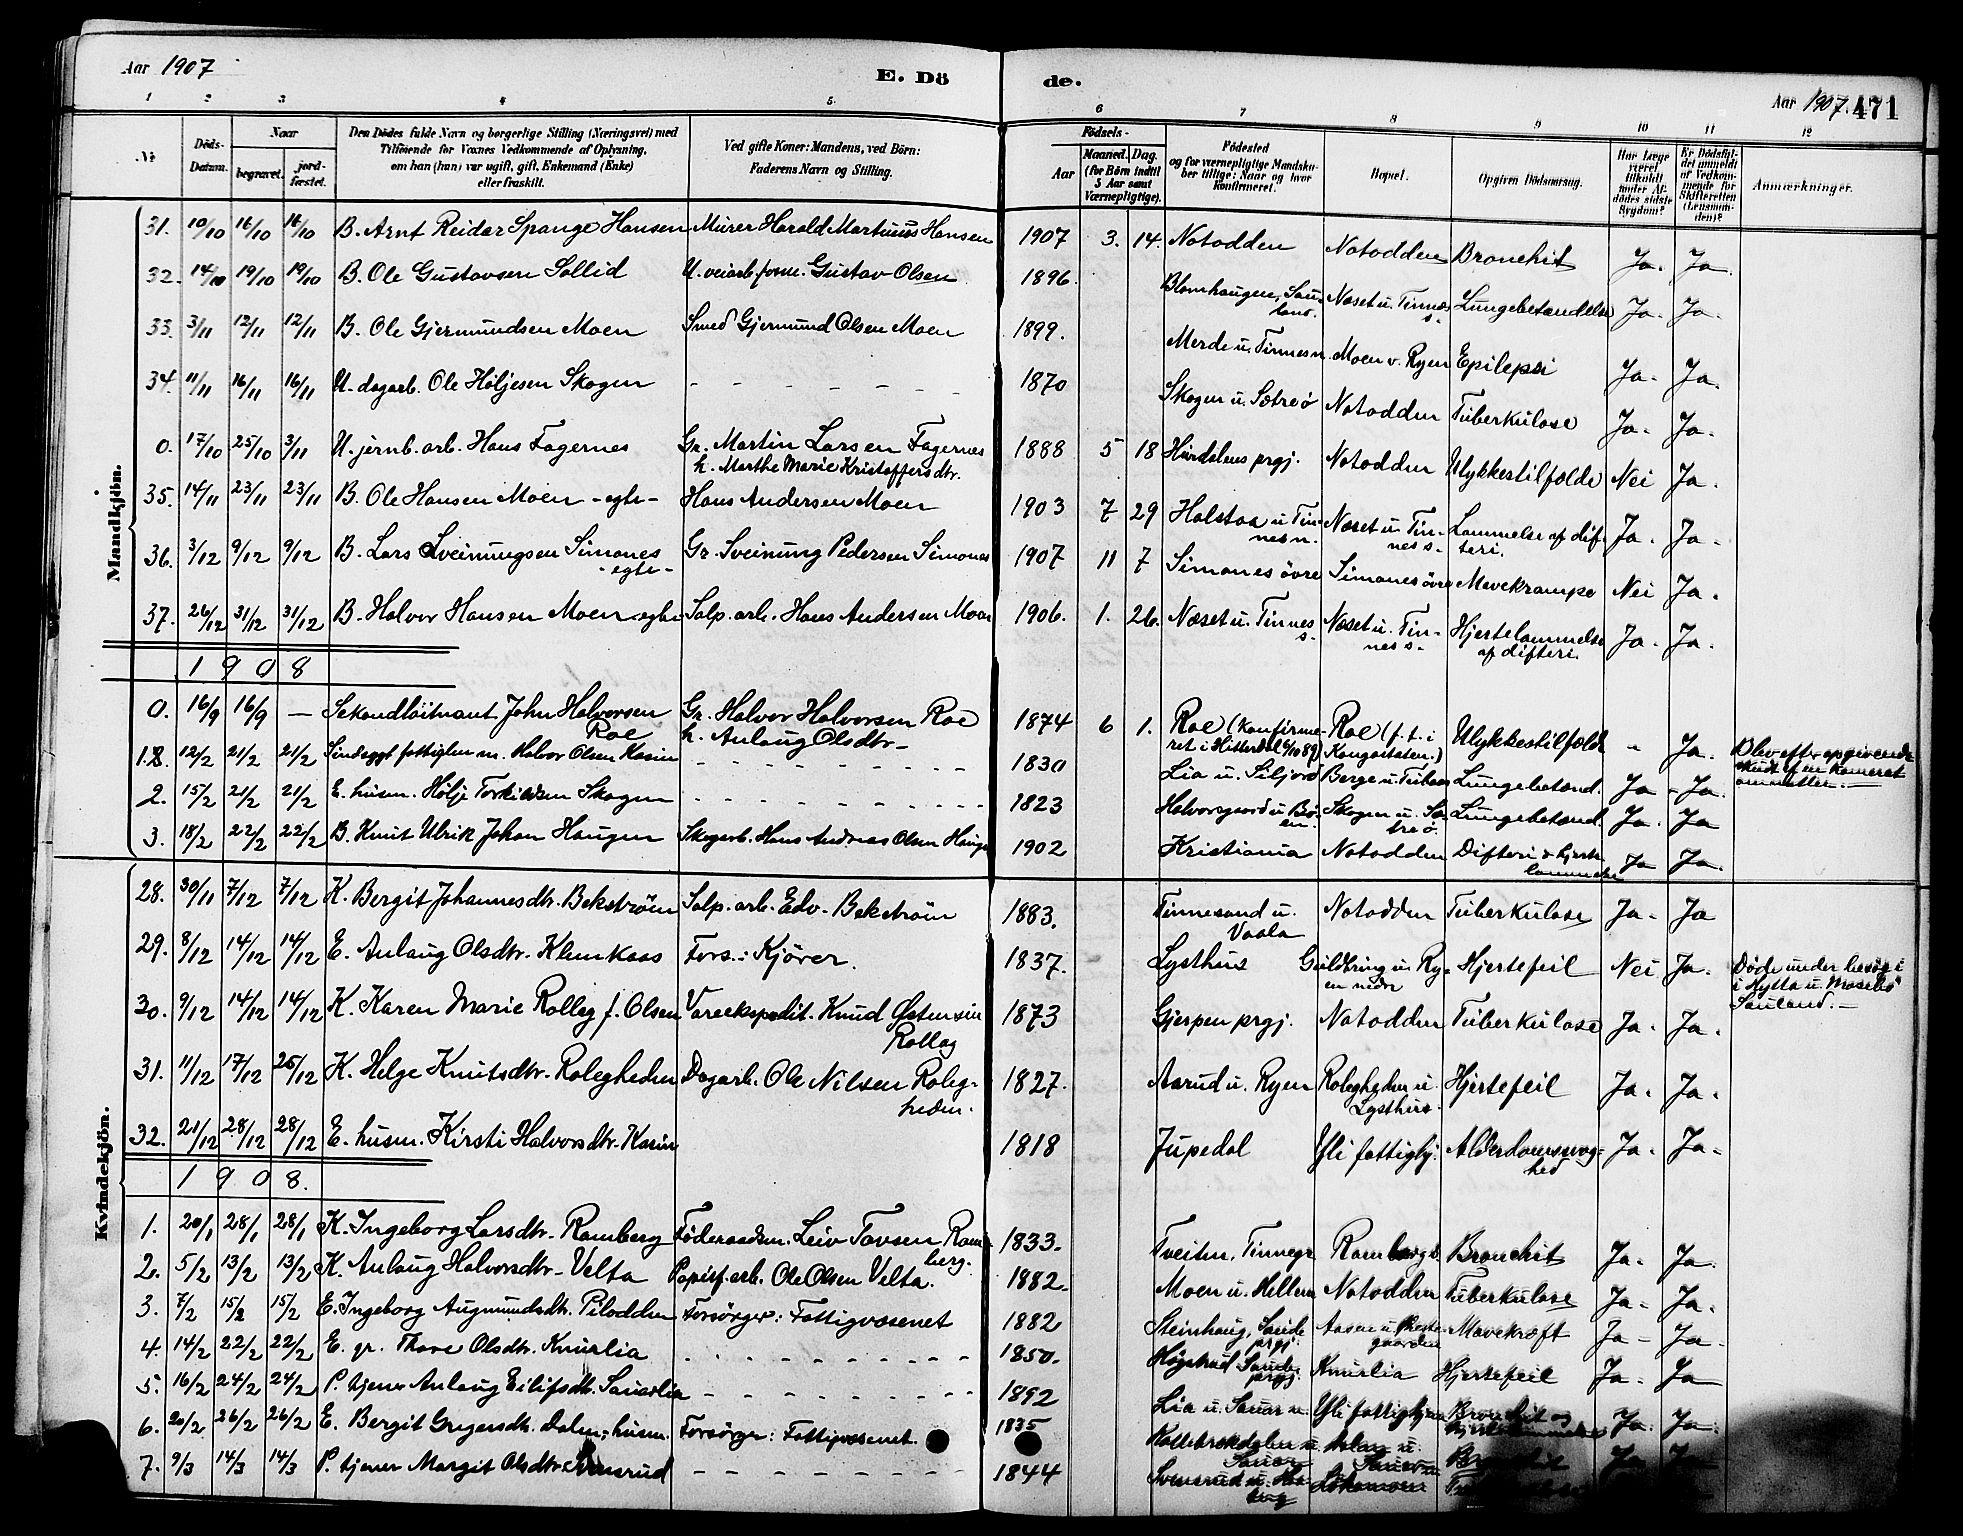 Aar 1907
E. Dö
de.
Aar 1907. 471
1 2 3 4 5. 6 7 8 9 10 11 12
№
Döds-Datum.
Naar
begravet.
jord-fæstet.
Den Dödes fulde Navn og borgerlige Stilling (Næringsvei) med
Tilföiende for Voxnes Vedkommende af Oplysning,
om han (hun) var ugift, gift, Enkemand (Enke)
eller fraskilt.
Ved gifte Koner: Mandens, ved Börn:
Faderens Navn og Stilling.
Födsels-
Aar
Maaned. Dag.
(for Börn indtil
5 Aar samt
Værnepligtige).
Födested
og for værnepligtige Mandsku-
ber tillige: Naar og hvor
Konfirmeret.
Bopæl.
Opgiven Dödsaarsag.
Har Læge
været
tilkaldt
under Af-
dödes sidste
Sygdom?
Er Dödsfal-
det anmeldt
af Vedkom-
mende for
Skifteretten
(Lensman-
den)?
Anmærkninger.
Mandkjön.
31. 10/10 16/10 16/10 B. Arnt Reidar Spange Hansen Murer Harald Martinius Hansen 1907 3. 14. Notodden Notodden Bronchit Ja. Ja.
32. 14/10 19/10 19/10 B. Ole Gustavsen Sollid U. veiarb. forne. Gustav Olsen 1896. Blomhaugen, Sau-
land. Næset u. Tinnes
s. Lungebetændelse Ja. Ja.
33. 3/11 12/11 12/11 B. Ole Gjermundsen Moen Smed Gjermund Olsen Moen 1899. Merde u. Tinnes n. Moen v. Ryen Epilepsi Ja. Ja.
34. 11/11 16/11 16/11 U. dagarb. Ole Höljesen Skogen - - - - - - 1870 Skogen u. Sætreö Notodden Tuberkulose Ja. Ja.
0. 17/10 25/10 3/11 U. jernb. arb. Hans Fagernes Gr. Martin Larsen Fagernes
h. Marthe Marie Kristoffersdtr. 1888 5 18 Hurdalens prgj. Notodden Ulykkestilfælde Nei Ja.
35. 14/11 23/11 23/11 B. Ole Hansen Moen - egte - Hans Andersen Moen 1903 7 29 Halstaa u Tin-
nes n. Næset u. Tin-
nes s. Lammelse af dif-
teri. Ja. Ja.
36. 3/12 9/12 9/12 B. Lars Sveinungsen Simones
- egte - Gr. Sveinung Pedersen Simones 1907 11 7 Simones övre Simones övre Mavekrampe Nei Ja.
37. 26/12 31/12 31/12 B. Halvor Hansen Moen egte Salp. arb. Hans Andersen Moen 1906. 1. 26. Næset u. Tinnes
s. Næset u. Tin-
nes s. Hjertelammelse
af difteri. Ja. Ja.
1908
0. 16/9 16/9 — Sekondlöitnant John Halvorsen
Roe Gr. Halvor Halvorsen Roe
h. Anlaug Olsdtr. 1874 6 1. Roe (Konfirme-
ret i Hitterdal 6/10 89) Roe (f. t. i
Kongostaten.) Ulykkestilfælde - Ja. Blev eft. opgivende
skudt af en kamerat

1. 12/2 21/2 21/2 Sindssygt fattiglem m. Halvor Olsen Kasin - - - - - - 1830 Lia u. Siljord Berge u. Lungebetænd. Ja - Ja.
2. 15/2 21/2 21/2 E. husm. Hölje Torkildsen Skogen - - - - - - 1823 Halvorsgaard u. Bö-
en. Skogen u. Sæ-
treö. Lungebetænd. Ja. Ja
3. 18/2 22/2 22/2 B. Knut Ulrik Johan Haugen Skogarb. Hans Andreas Olsen Haugen 1902 Kristiania Notodden Difteri & hjerte
lammelse Ja Ja.
Kvindekjön.
28. 30/11 7/12 7/12 K. Bergit Johannesdtr. Bekström Salp. arb. Edv. Bekström 1883. Tinnesand u.
Vaala Notodden Tuberkulose Ja. Ja
29. 8/12 14/12 14/12 E. Anlaug Olsdtr. Klemkaas Fors.: Kjörer. 1837. Lysthus Guldbring u. Ry-
en nedre Hjertefeil Nei Ja. Döde under besög i
i Hytta u. Mosebö
Sauland.
30. 9/12 14/12 14/12 K. Karen Marie Rollag f. Olsen Vareekspedit. Knud Östensen
Rollag 1873 Gjerpen prgj. Notodden Tuberkulose Ja. Ja.
31. 11/12 17/12 25/12 K. Helge Knutsdtr. Rolegheden Dagarb. Ole Nilsen Roleg-
heden. 1827. Aarud u. Ryen Rolegheden u.
Lysthus. Hjertefeil Ja. Ja.
32. 21/12 28/12 28/12 E. husm. Kirsti Halvorsdtr. Kasin 1818 Jupedal Yli fattiggj. Alderdomssvag-
hed Ja. Ja.
1908.
1. 20/1 28/1 28/1 K. Ingeborg Larsdtr. Ramberg Föderaadsm. Leiv Tovsen Ram-
berg. 1833. Tveiten, Tinnegr. Ramberg Bronchit Ja. Ja.
2. 5/2 13/2 13/2 K. Anlaug Halvorsdtr. Velta Papirf. arb. Ole Olsen Velta. 1882. Moen u. Hellem Notodden Tuberkulose Ja. Ja.
3. 7/2 15/2 15/2 E. Ingeborg Augmundsdtr. Pilodden Forsörger: Fattigvæsenet 1882 Steinhaug, Saude
prgj. Aasen u. Preste-
gaarden Mavekræft Ja - Ja.
4. 14/2 22/2 22/2 E. gr. Thore Olsdtr. Knurlia - - - - - - 1850. Högstrud Saude
prgj. Knurlia Hjertefeil Ja. Ja
5. 16/2 24/2 24/2 P. tjener Anlaug Eilifsdtr. Sauarlia - - - - - - 1892 Lia u. Sauar Yli fattiggj. Bronchit og Ja. Ja.
6. 20/2 26/2 26/2 E. Bergit Gregersdtr. Dalen, husm. Forsörger: Fattigvæsenet. 1835 Sauar
7. 9/3 14/3 14/3 P. tjener Margit Olsdtr. - - - - - - 1844